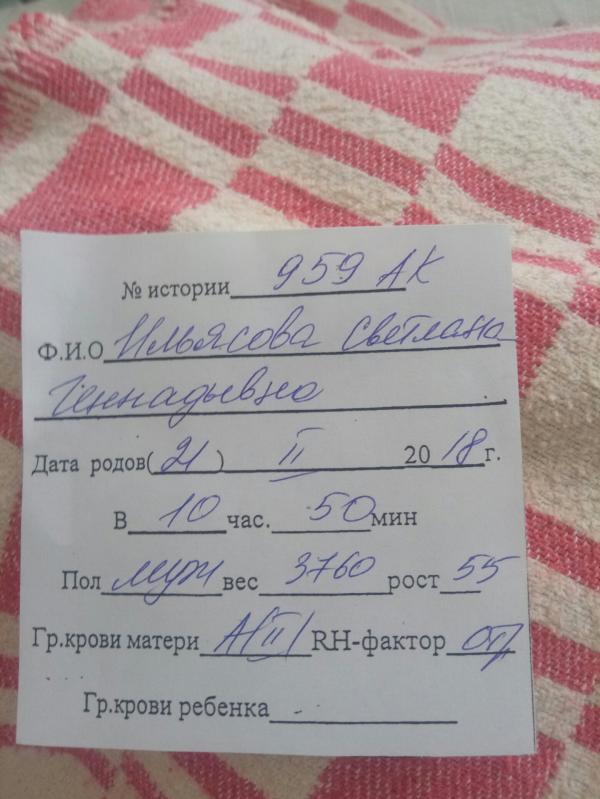 № истории 959 АК
Ф.И.О Ильясова Светлана
Геннадьевна
Дата родов( 21 ) II 20 18 г.
В 10 час. 50 мин
Пол муж вес 3760 рост 55
Гр.крови матери А(II) RH-фактор отр
Гр.крови ребенка